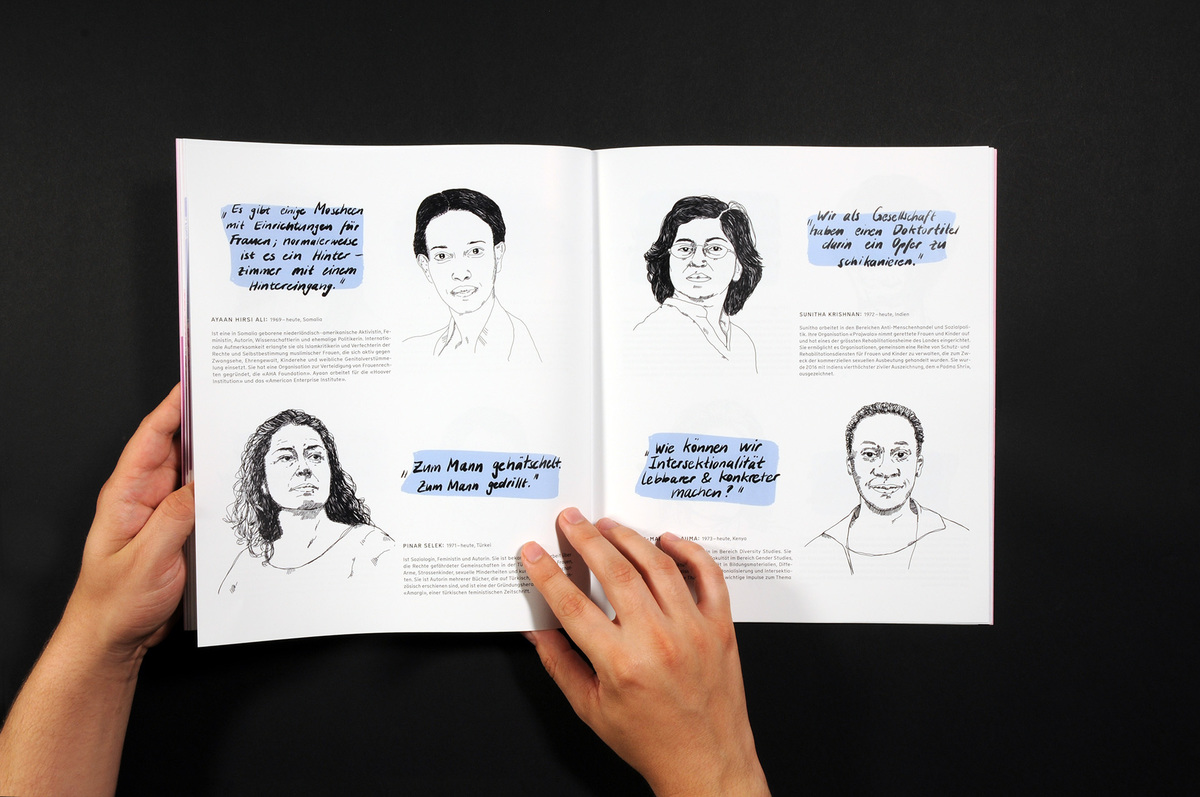 „Es gibt einige Moscheen
mit Einrichtungen für
Frauen; normalerweise
ist es ein Hinter-
zimmer mit einem
Hintereingang."
AYAAN HIRSI ALI: 1969–heute, Somalia
Ist eine in Somalia geborene niederländisch-amerikanische Aktivistin, Fe-
ministin, Autorin, Wissenschaftlerin und ehemalige Politikerin. Internatio-
nale Aufmerksamkeit erlangte sie als Islamkritikerin und Verfechterin der
Rechte und Selbstbestimmung muslimischer Frauen, die sich aktiv gegen
Zwangsehe, Ehrengewalt, Kinderehe und weibliche Genitalverstümme-
lung einsetzt. Sie hat eine Organisation zur Verteidigung von Frauenrech-
ten gegründet, die «AHA Foundation». Ayaan arbeitet für die «Hoover
Institution» und das «American Enterprise Institute».
„Zum Mann gehätschelt.
Zum Mann gedrillt."
PINAR SELEK: 1971–heute, Türkei
Ist Soziologin, Feministin und Autorin. Sie ist
die Rechte gefährdeter Gemeinschaften in der
Arme, Strassenkinder, sexuelle Minderheiten und
ten. Sie ist Autorin mehrerer Bücher, die auf Türkisch,
zösisch erschienen sind, und ist eine der
«Amargi», einer türkischen feministischen Zeitschrift.
„Wir als Gesellschaft
haben einen Doktortitel
darin ein Opfer zu
schikanieren."
SUNITHA KRISHNAN: 1972–heute, Indien
Sunitha arbeitet in den Bereichen Anti-Menschenhandel und Sozialpoli-
tik. Ihre Organisation «Prajwala» nimmt gerettete Frauen und Kinder auf
und hat eines der grössten Rehabilitationsheime des Landes eingerichtet.
Sie ermöglicht es Organisationen, gemeinsam eine Reihe von Schutz- und
Rehabilitationsdiensten für Frauen und Kinder zu verwalten, die zum Zw-
eck der kommerziellen sexuellen Ausbeutung gehandelt wurden. Sie wur-
de 2016 mit Indiens vierthöchster ziviler Auszeichnung, dem «Padma Shri»,
ausgezeichnet.
„Wie können wir
Intersektionalität
lebbarer & konkreter
machen?"
AUMA: 1973–heute, Kenya
im Bereich Diversity Studies. Sie
im Bereich Gender Studies,
in Bildungsmaterialien, Diffe-
und Intersektio-
wichtige Impulse zum Thema